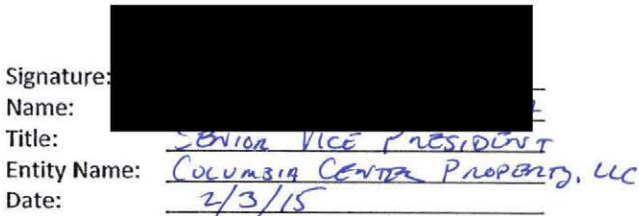 Signature:
Name:
Title: SENIOR VICE PRESIDENT
Entity Name: COLUMBIA CENTER PROPERTY, LLC
Date: 2/3/15